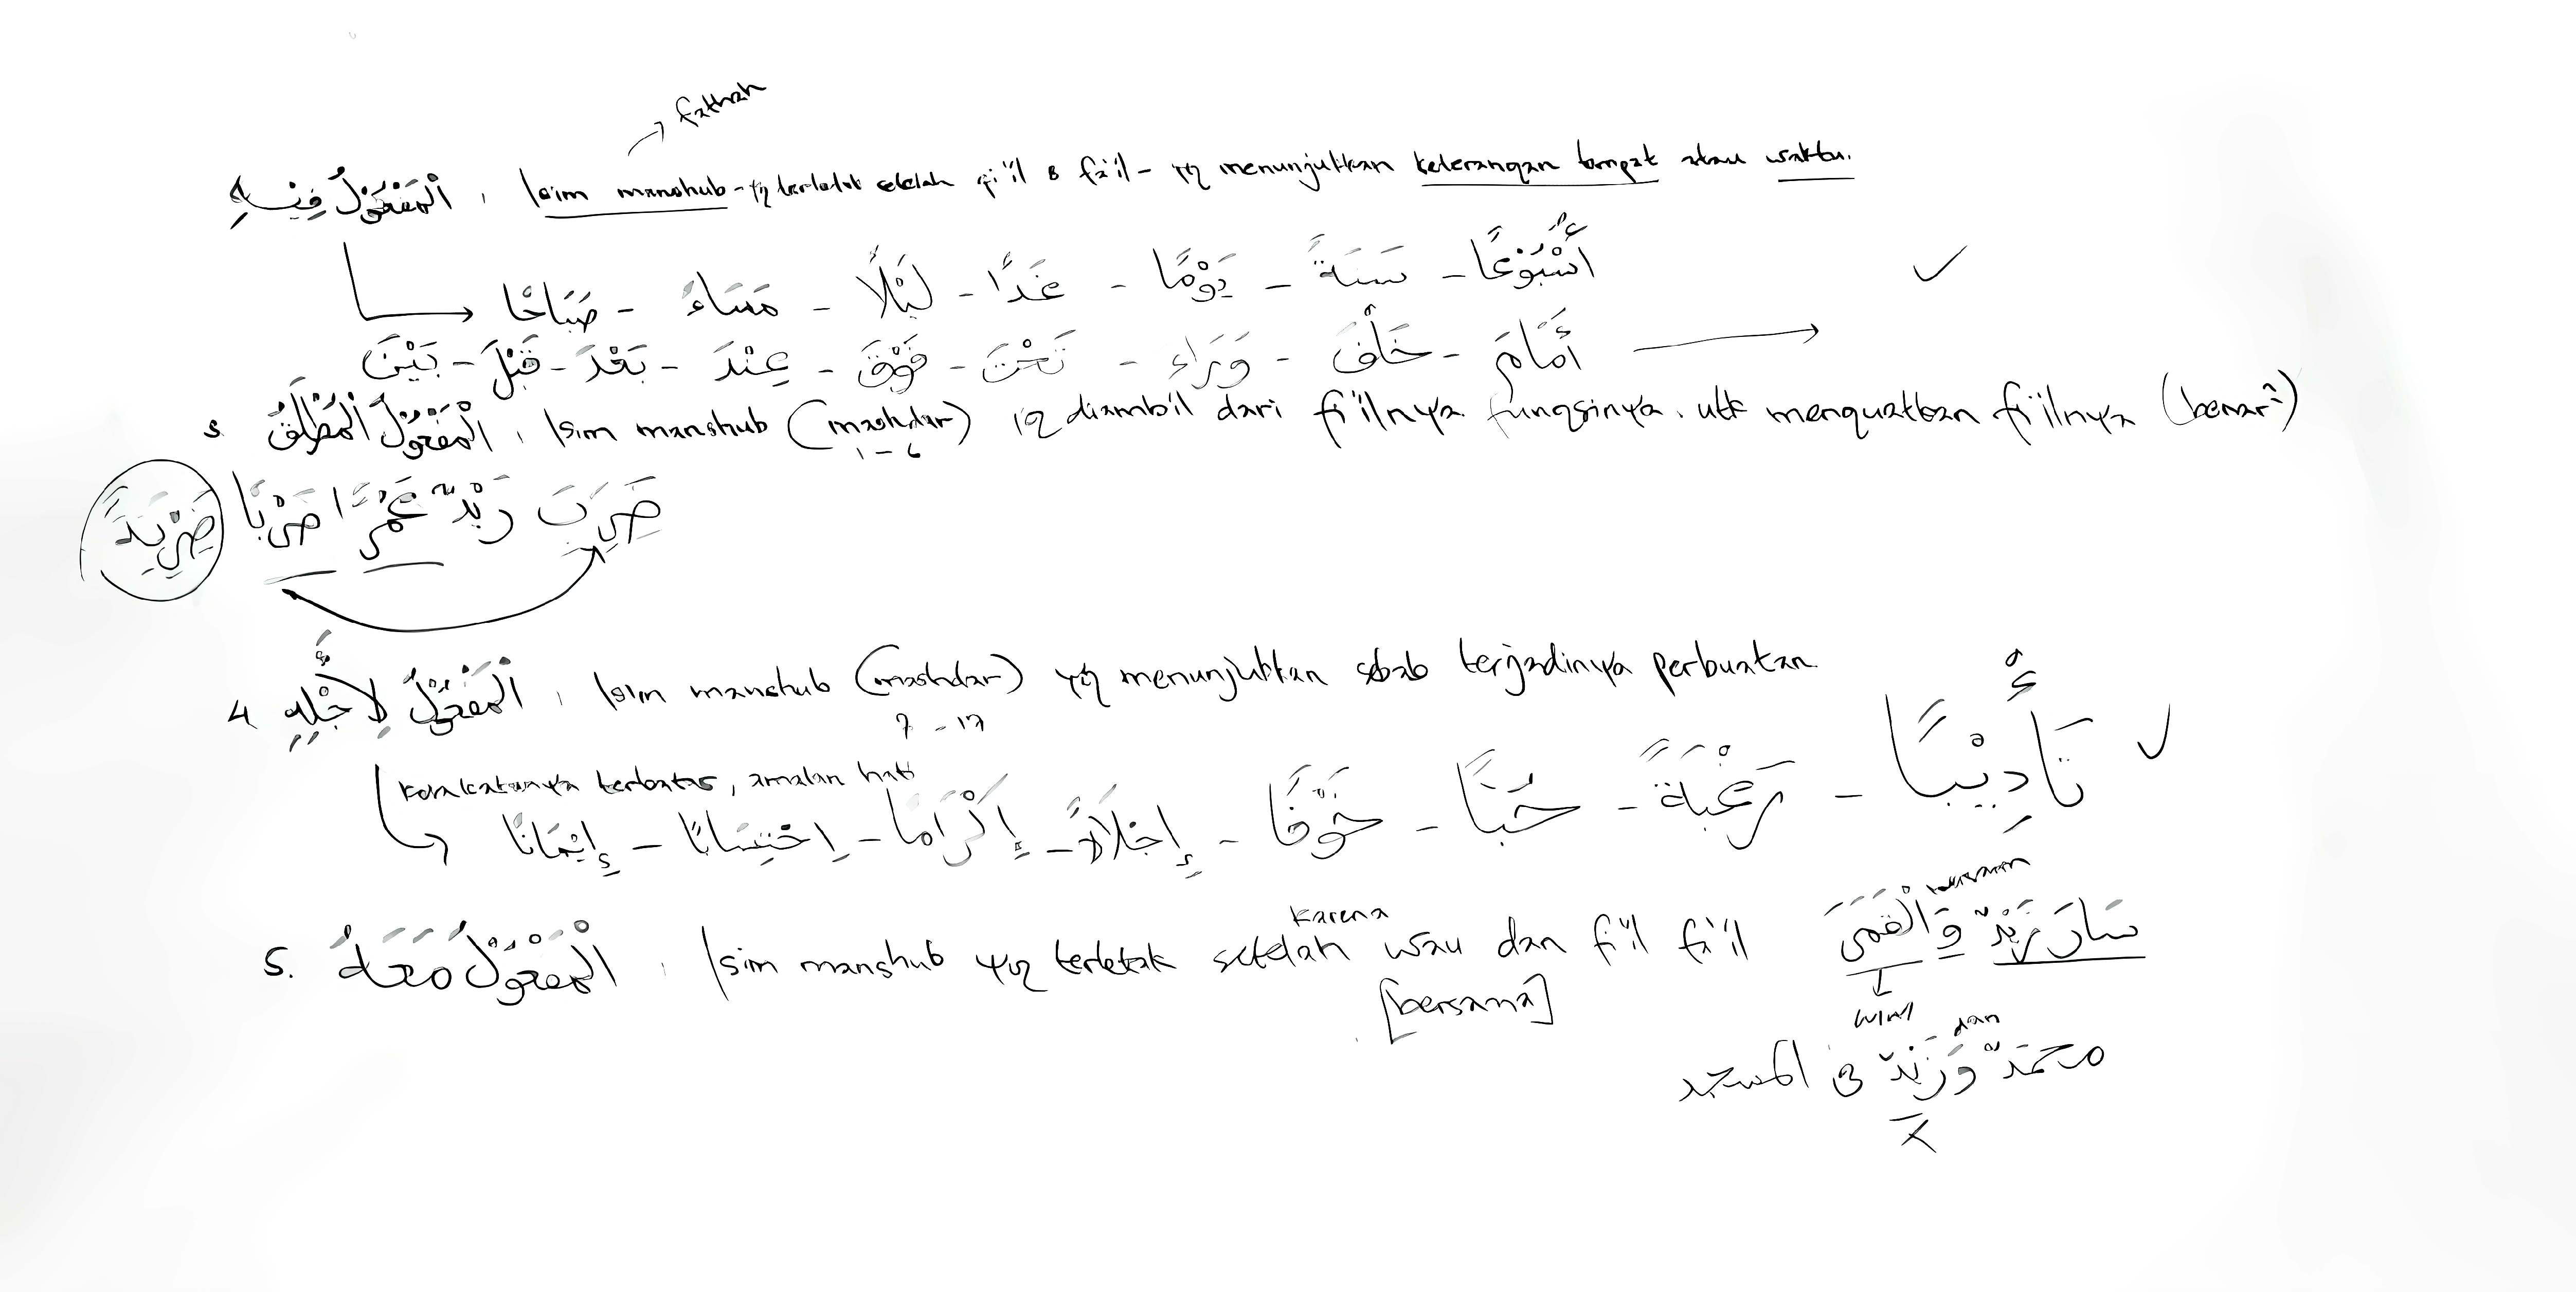 fathah
اَلْمَفْعُوْلُ فِيْهِ , Isim manshub - yg terletak setelah fi'il & fa'il - yg menunjukkan keterangan tempat atau waktu.
أُسْبُوْعًا - سَنَةً - يَوْمًا - غَدًا - لَيْلًا - مَسَاءً - صَبَاحًا
أَمَامَ - خَلْفَ - وَرَاءَ - تَحْتَ - فَوْقَ - عِنْدَ - بَعْدَ - قَبْلَ - بَيْنَ
3. اَلْمَفْعُوْلُ الْمُطْلَقُ , Isim manshub (mashdar) yg diambil dari fi'ilnya. fungsinya. utk menguatkan fi'ilnya (benar²)
1 - 6
ضَرَبَ زَيْدٌ عَمْرًا ضَرْبًا
4 اَلْمَفْعُوْلُ لِأَجْلِهِ , Isim manshub (mashdar) yg menunjukkan sebab terjadinya perbuatan.
7 - 17
kosakatanya terbatas, amalan hati
تَأْدِيْبًا - رَغْبَةً - حُبًّا - خَوْفًا - إِجْلَالًا - إِكْرَامًا - اِحْتِسَابًا - إِيْمَانًا
karena
5. اَلْمَفْعُوْلُ مَعَهُ , Isim manshub yg terletak setelah wau dan fi'il fa'il
[bersama]
سَارَ زَيْدٌ وَالْقَمَرَ
dan
محمَدٌ وَزَيْدٌ فى المسجد